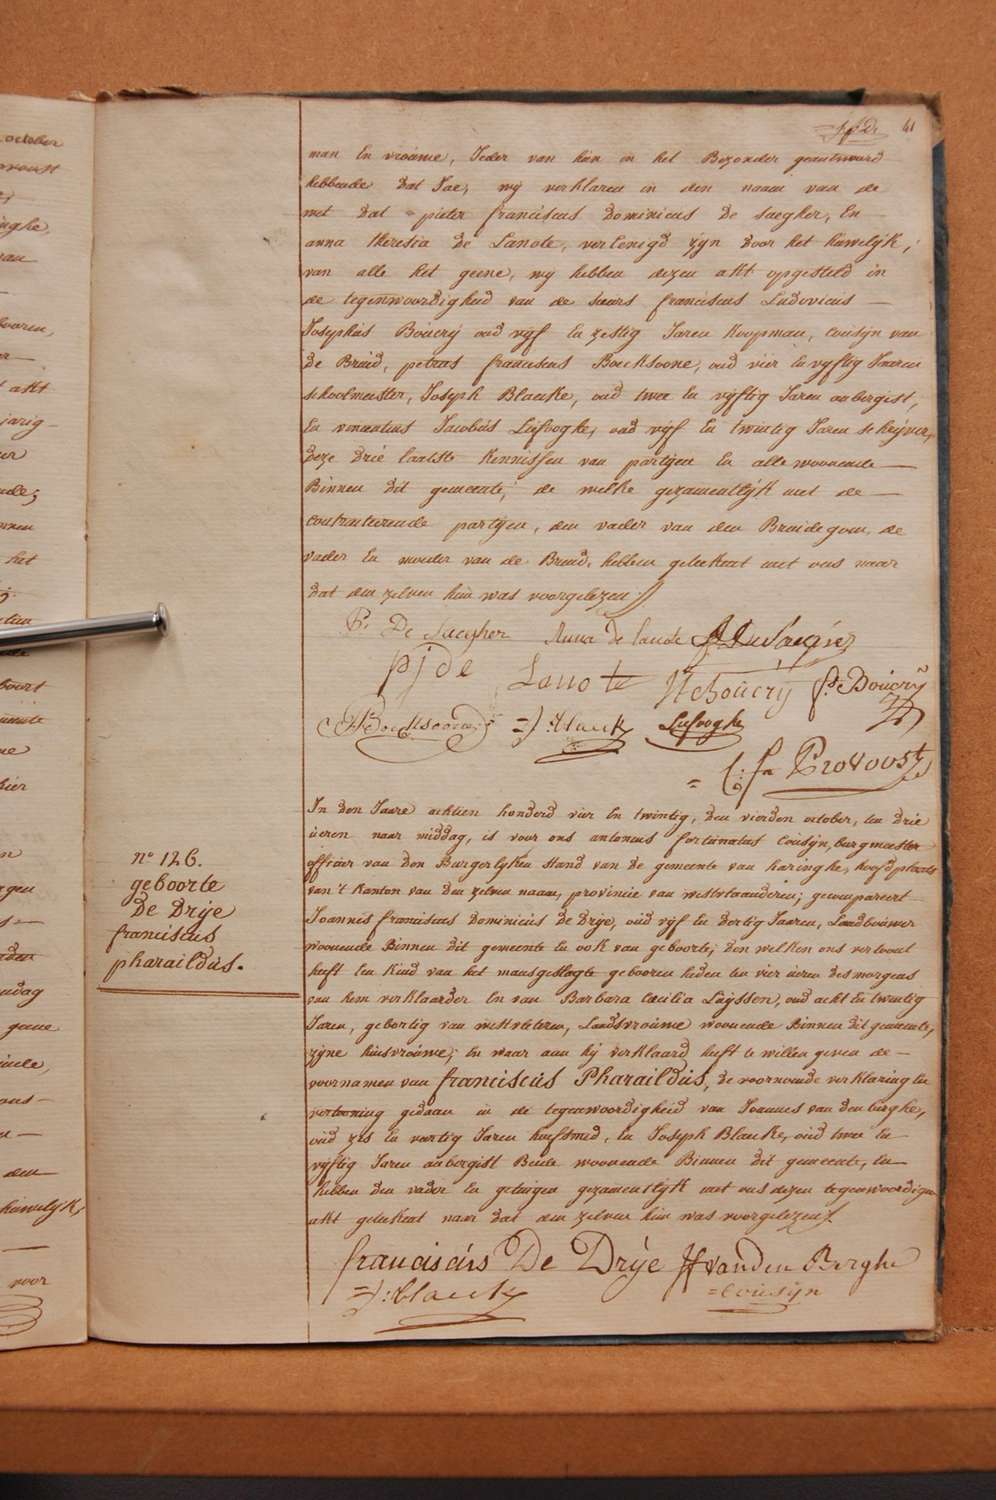 41
man en vroúwe, Ieder van hún in het Bezonder geantwoord
hebbende dat Jae, wij verklaren in den naam van de
wet dat pieter franciscus dominicus de saegher, en
anna theresia de Lanote, verlenigd zijn door het húwelijk;
van alle het geene, wij hebben dezen akt opgesteld in
de tegenwoordigheid van de sieurs franciscus Ludovicus
Josephus Boúcrij oud vijf en zestig Jaren koopman, cousijn van
de Bruid, petrus franciscus Boucksoone, oud vier en vijftig Jaaren
schoolmeester, Joseph Blancke, oud twee en vijftig Jaren aubergist,
en vincentius Jacobús Lefooghe, oud vijf en twintig Jaren schrijver,
deze drie laatste kennissen van partijen en alle woonende
Binnen dit gemeente; de welke gezamentlijk met de
contracterende partijen, den vader van den Bruidegom, de
vader en moeder van de Bruid, hebben geteekent met ons naer
dat den zelven hún was voorgelezen
P. De Saegher Anna de lanote
pj de Lanote Boúcrij Boúcrij
Boucksoone J: Blancke Lefooghe
Provoost
In den Jaare achtien honderd vier en twintig, den vierden october, ten drie
úeren naar middag, is voor ons antonius fortunatus Coúsijn, burgmeester
officier van den Burgerlyken stand van de gemeente van haringhe, hoofdplaats
van 't kanton van den zelven naam, provincie van westvlaanderen; gecompareert
Joannis franciscus Dominicús de Drije, oúd vijf en dertig Jaaren, Landboúwer
woonende Binnen dit gemeente en ook van geboorte; den welken ons vertoont
heeft een kind van het mansgeslagte gebooren heden ten vier úeren des morgens
van hem verklaarder en van Barbara Cæcilia Luijssen, oud acht en twintig
Jaren, geboortig van westvleteren, Landsvroúwe woonende Binnen dit gemeente,
zijne huisvroúwe; en waar aan hij verklaard heeft te willen geven de
voornamen van franciscús Pharaildús, de voornoemde verklaring en
vertooning gedaan in de tegenwoordigheid van Joannes van den berghe,
oúd zes en veertig Jaren hoefsmid, en Joseph Blancke, oúd twee en
vijftig Jaren aubergist Beide woonende Binnen dit gemeente, en
hebben den vader en getuigen gezamentlijk met ons dezen tegenwoordigen
akt geteekent naer dat den zelven hún was voorgelezen.
franciscús De Drije vanden Berghe
J: Blancke Coúsijn
n° 126.
geboorte
De Drije
franciscus
pharaildús.